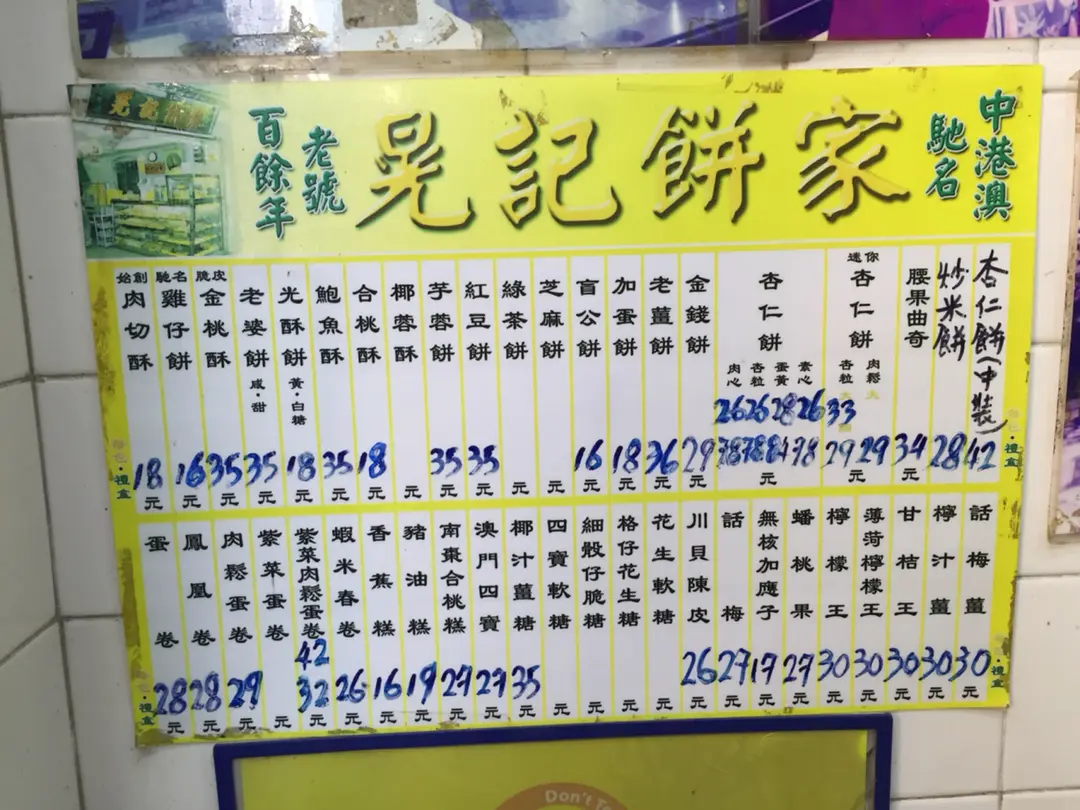 百餘年
老號
晃記餅家
馳名
中港澳
始創 肉切酥 18元
馳名 雞仔餅 16元
脆皮 金桃酥 35元
老婆餅 咸·甜 35元
光酥餅 黃·白糖 18元
鮑魚酥 35元
合桃酥 18元
椰蓉酥 元
芋蓉餅 35元
紅豆餅 35元
綠茶餅 元
芝麻餅 元
盲公餅 16元
加蛋餅 18元
老薑餅 36元
金錢餅 29元
杏仁餅 肉心 杏粒 蛋黃 素心
26 26 28 26
78 78 84 78 元
迷你 杏仁餅 杏粒 肉鬆
33
29 29 元
腰果曲奇 34元
炒米餅 28
杏仁餅(中裝) 42
禮盒
禮盒
蛋卷 28元
鳳凰卷 28元
肉鬆蛋卷 29元
紫菜蛋卷 元
紫菜肉鬆蛋卷 42 32元
蝦米春卷 26元
香蕉糕 16元
豬油糕 19元
南棗合桃糕 27元
澳門四寶 27元
椰汁薑糖 35元
四寶軟糖 元
細骰仔脆糖 元
格仔花生糖 元
花生軟糖 元
川貝陳皮 26元
話梅 27元
無核加應子 17元
蟠桃果 27元
檸檬王 30元
薄荷檸檬王 30元
甘桔王 30元
檸汁薑 30元
話梅薑 30元
禮盒
禮盒
Don't